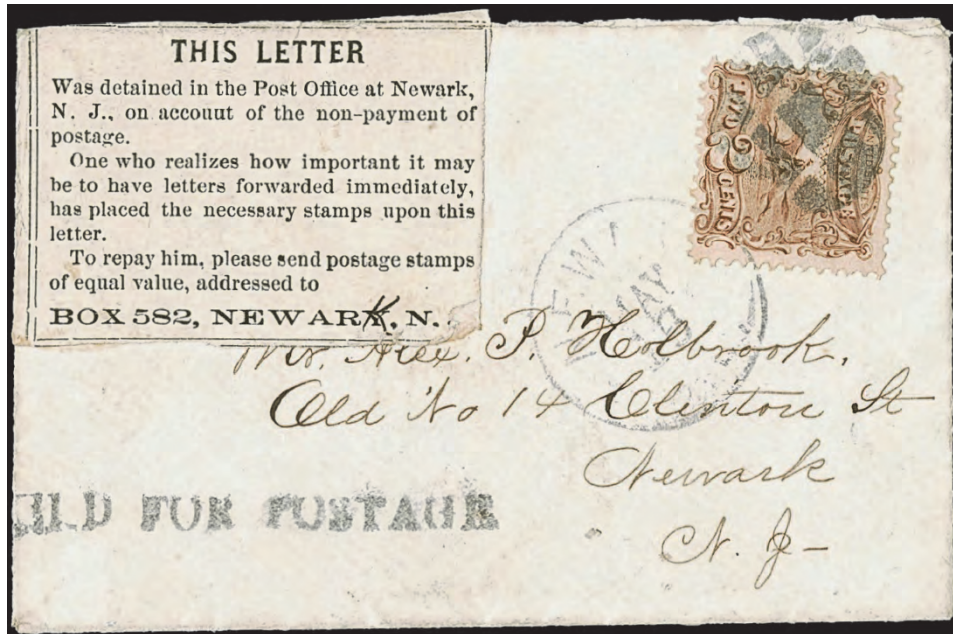 THIS LETTER
Was detained in the Post Office at Newark,
N. J., on accouut of the non-payment of
postage.
One who realizes how important it may
be to have letters forwarded immediately,
has placed the necessary stamps upon this
letter.
To repay him, please send postage stamps
of equal value, addressed to
BOX 582, NEWARK, N.
Mr. Alex. P. Holbrook.
Old No 14 Clinton St
Newark
N. J-
HELD FOR POSTAGE
POSTAGE
CENTS
MAY